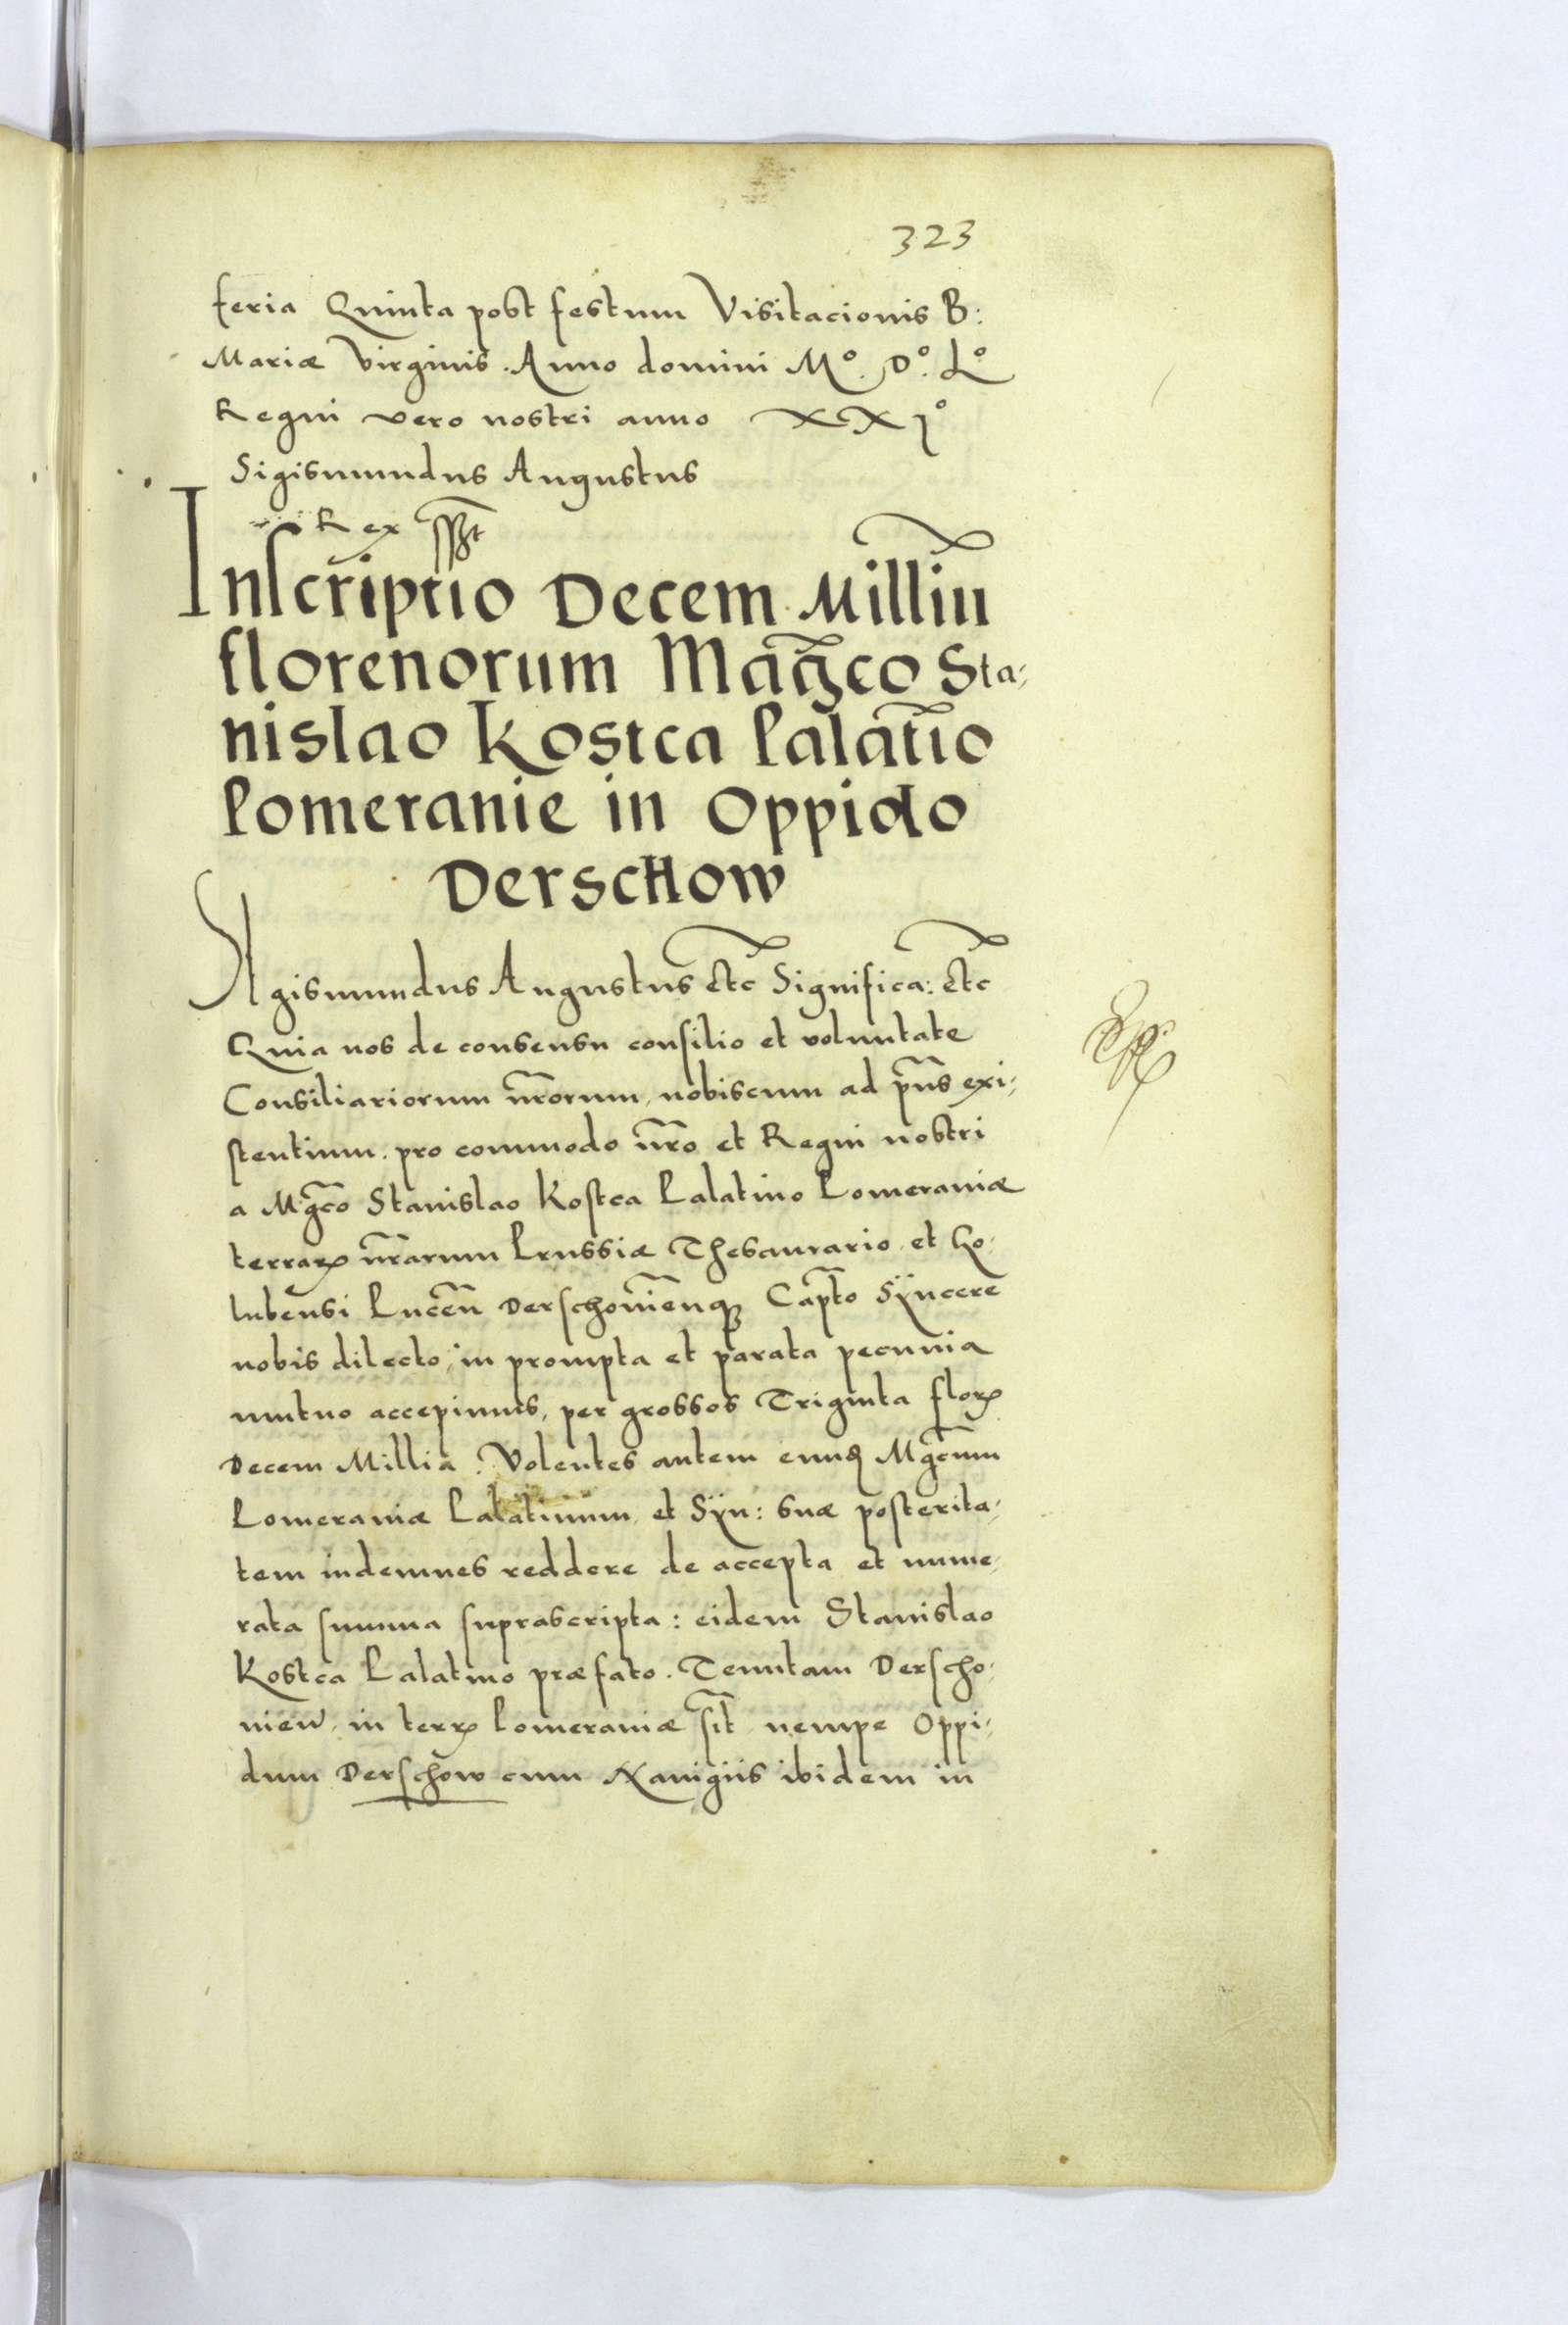 323
feria Quinta post festum Visitacionis B:
Mariæ Virginis. Anno domini Mº. Dº. Lº
Regni vero nostri anno XXIº
Sigismundus Augustus
Rex sszt
Inscriptio Decem Milliū
florenorum Mag̃co Sta,
nislao Kostca Palatĩo
Pomeranie in Oppido
Derschow
Sigismundus Augustus Etc̃ Significa: Etc̃
Quia nos de consensu consilio et voluntate
Consiliariorum nr̃orum, nobiscum ad pñs exi,
stentium. pro commodo nr̃o et Regni nostri
a Mg̃co Stanislao Kostca Palatino Pomeraniæ
terrarꝝ nr̃arum Prussiæ Thesaurario et Go,
lubensi Puceñ Derschovieñqꝫ Cap̃to Sÿncere
nobis dilecto, in prompta et parata pecunia
mutuo accepimus, per grossos Triginta florꝝ
Decem Millia. Volentes autem eund Mg̃cum
Pomeraniæ Palatinum et Sÿn: suæ posterita,
tem indemnes reddere de accepta et nume,
rata summa suprascripta: eidem Stanislao
Kostca Palatino præfato. Tenutam Derscho,
vieñ, in terrꝝ Pomeraniæ sit̃ nempe Oppi,
dum Derschow cum Navigiis ibidem in